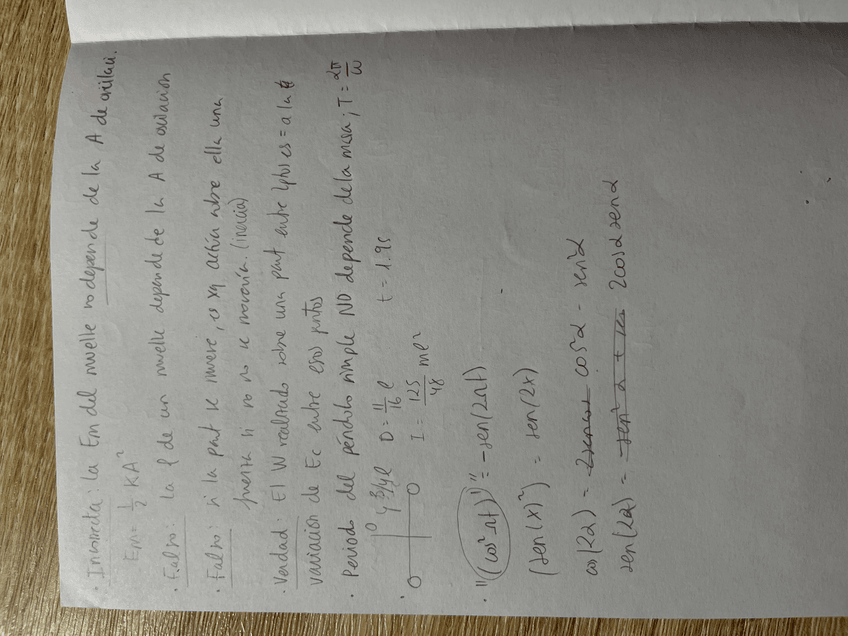 · Incorrecta: la Em del muelle no depende de la A de oscilaci.
Em = 1/2 KA²
· Falso: la f de un muelle depende de la A de oscilación
· Falso: si la part se mueve, es xq actúa sobre ella una
fuerza si no no se movería. (inercia)
· Verdad: El W realizado sobre una part entre 2ptos es = a la
variación de Ec entre esos puntos
· Periodo del péndulo simple NO depende de la masa; T = 2π/ω
D = 11/16 l t = 1.9s
I = 125/48 ml²
· "(cos² Ωt)'" = -sen(2Ωt)
(sen(x)²) = sen(2x)
cos(2α) = cos²α - sen²α
sen(2α) = 2cosα senα